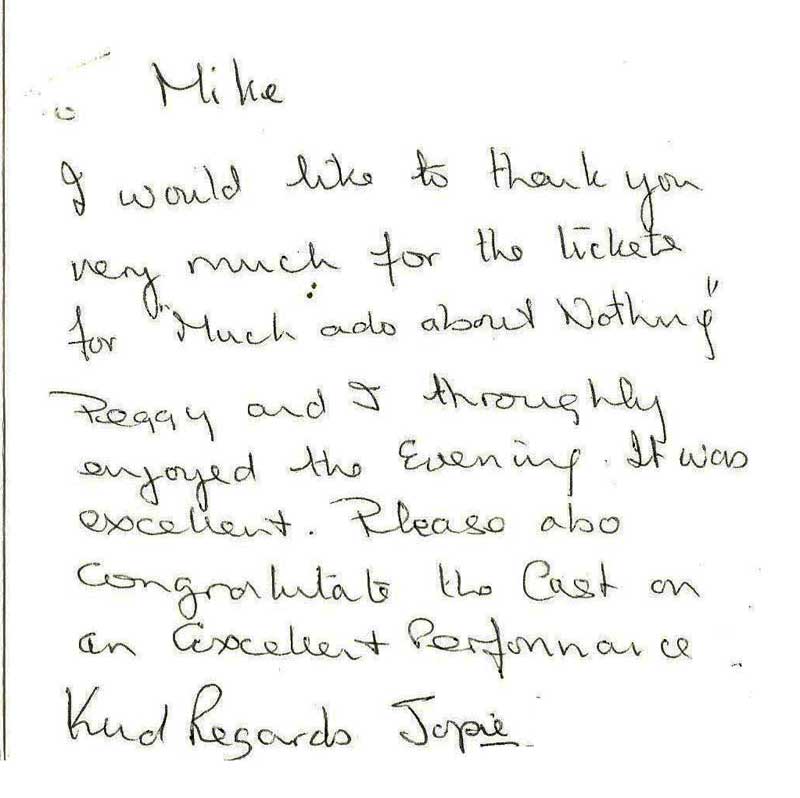 Mike
I would like to thank you
very much for the tickets
for "Much ado about Nothing"
Peggy and I throughly
enjoyed the Evening. It was
excellent. Please also
Congratulate the Cast on
an Excellent Performance
Kind Regards Jopie